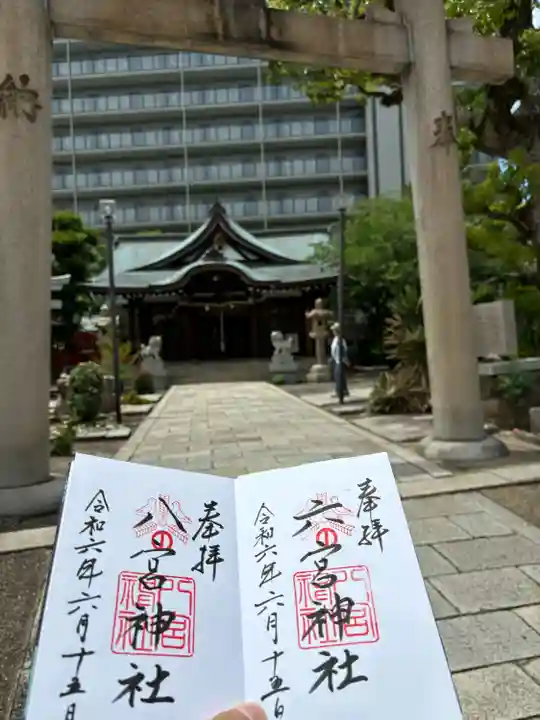 奉拝
六宮神社
令和六年六月十五日
奉拝
八宮神社
令和六年六月十五日